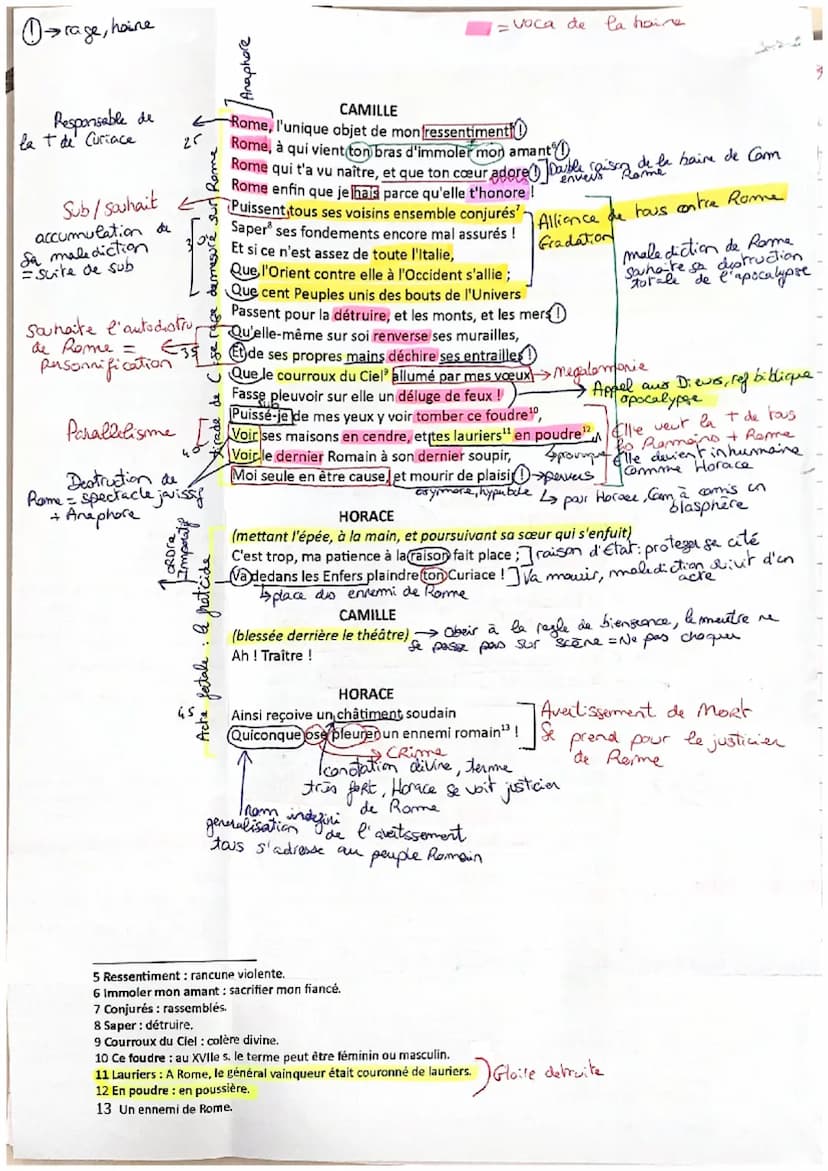 ! → rage, haine
= voca de la haine
Anaphore
CAMILLE
Responsable de
la † de Curiace
25
Rome, l'unique objet de mon ressentiment⁵ !
Rome, à qui vient ton bras d'immoler mon amant⁶ !
Rome qui t'a vu naître, et que ton cœur adore !
Double raison de la haine de Cam
envers Rome
Rome enfin que je hais parce qu'elle t'honore !
Sub / souhait
accumulation de
sa malediction
= suite de sub
30
Puissent tous ses voisins ensemble conjurés⁷
Saper⁸ ses fondements encore mal assurés !
Et si ce n'est assez de toute l'Italie,
Que l'Orient contre elle à l'Occident s'allie ;
Que cent Peuples unis des bouts de l'Univers
Passent pour la détruire, et les monts, et les mers !
Alliance de tous contre Rome
Gradation
malediction de Rome
souhaite sa destruction
totale de l'apocalypse
Souhaite l'autodestru
de Rome =
personnification
35
Qu'elle-même sur soi renverse ses murailles,
Et de ses propres mains déchire ses entrailles !
Que le courroux du Ciel⁹ allumé par mes vœux
→ Megalomanie
Fasse pleuvoir sur elle un déluge de feux !
sub
→ Appel aux Dieux, ref biblique
apocalypse
Parallelisme
40
Puissé-je de mes yeux y voir tomber ce foudre¹⁰,
Voir ses maisons en cendre, et tes lauriers¹¹ en poudre¹²,
Voir le dernier Romain à son dernier soupir,
Moi seule en être cause, et mourir de plaisir !
provoque
→ pervers
oxymore, hyperbole
Elle veut la † de tous
les Romains + Rome
Elle devient inhumaine
comme Horace
↳ pour Horace, Cam à comis un
blasphère
Destruction de
Rome = spectacle jouissif
+ Anaphore
tirade de C : se rage demesure sur Rome
HORACE
(mettant l'épée, à la main, et poursuivant sa sœur qui s'enfuit)
C'est trop, ma patience à la raison fait place ;
raison d'Etat : proteger sa cité
Va dedans les Enfers plaindre ton Curiace !
Va mourir, malediction suivit d'un
acte
↳ place des ennemi de Rome
ORDRE
Imperatif
Acte fatale : le fratricide
CAMILLE
(blessée derrière le théâtre)
→ Obeir à la regle de biensceance, le meutre ne
se passe pas sur scène = Ne pas choquer
Ah ! Traître !
HORACE
45
Ainsi reçoive un châtiment soudain
Quiconque ose pleurer un ennemi romain¹³ !
Avertissement de Mort
Se prend pour le justicier
de Rome
→ Crime
conotation divine, terme
très fort, Horace se voit justicier
de Rome
Nom indefini
generalisation de l'avertissement
tous s'adresse au peuple Romain
5 Ressentiment : rancune violente.
6 Immoler mon amant : sacrifier mon fiancé.
7 Conjurés : rassemblés.
8 Saper : détruire.
9 Courroux du Ciel : colère divine.
10 Ce foudre : au XVIIe s. le terme peut être féminin ou masculin.
11 Lauriers : A Rome, le général vainqueur était couronné de lauriers.
12 En poudre : en poussière.
Gloire detruite
13 Un ennemi de Rome.